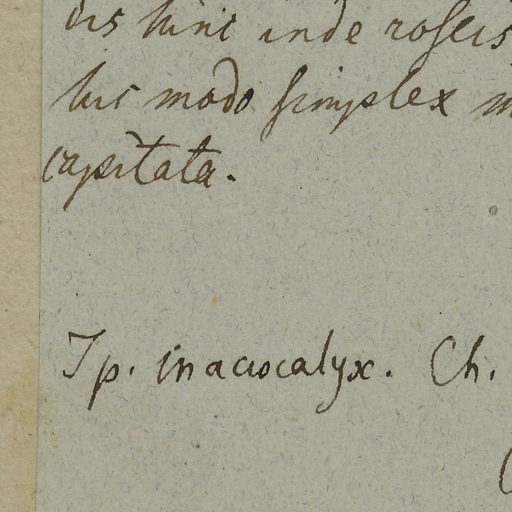 hinc inde roseis
modo simplex
capitata.
Ip. macrocalyx. Ch.